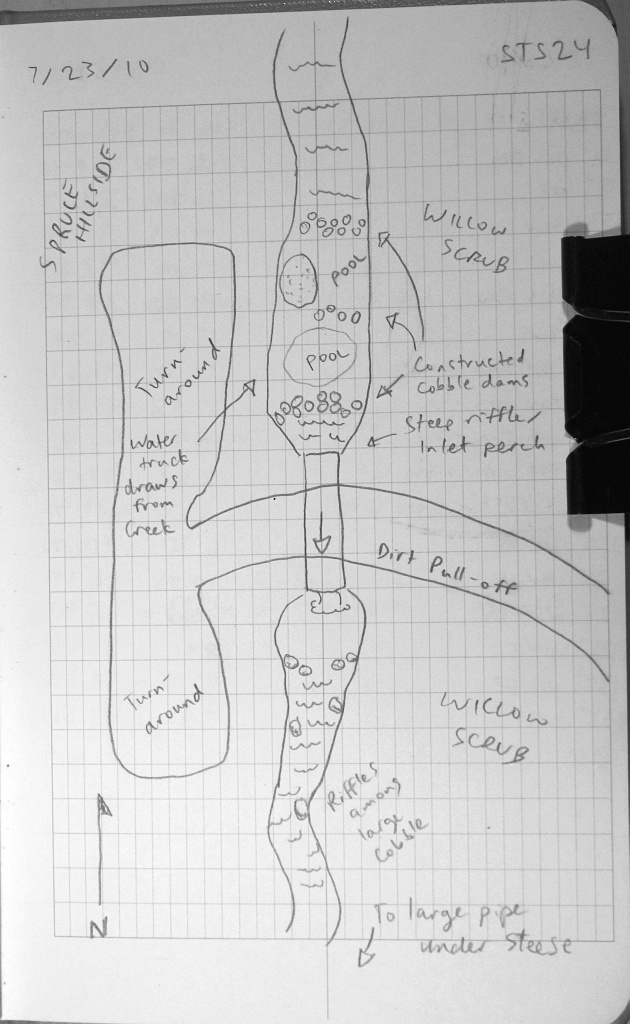 7/23/10
STS24
SPRUCE
HILLSIDE
WILLOW
SCRUB
POOL
Turn-
around
POOL
Constructed
cobble dams
Water
truck
draws
from
Creek
Steep riffle/
Inlet perch
Dirt Pull-off
Turn-
around
WILLOW
SCRUB
Riffles
among
large
cobble
N
To large pipe
under Steese